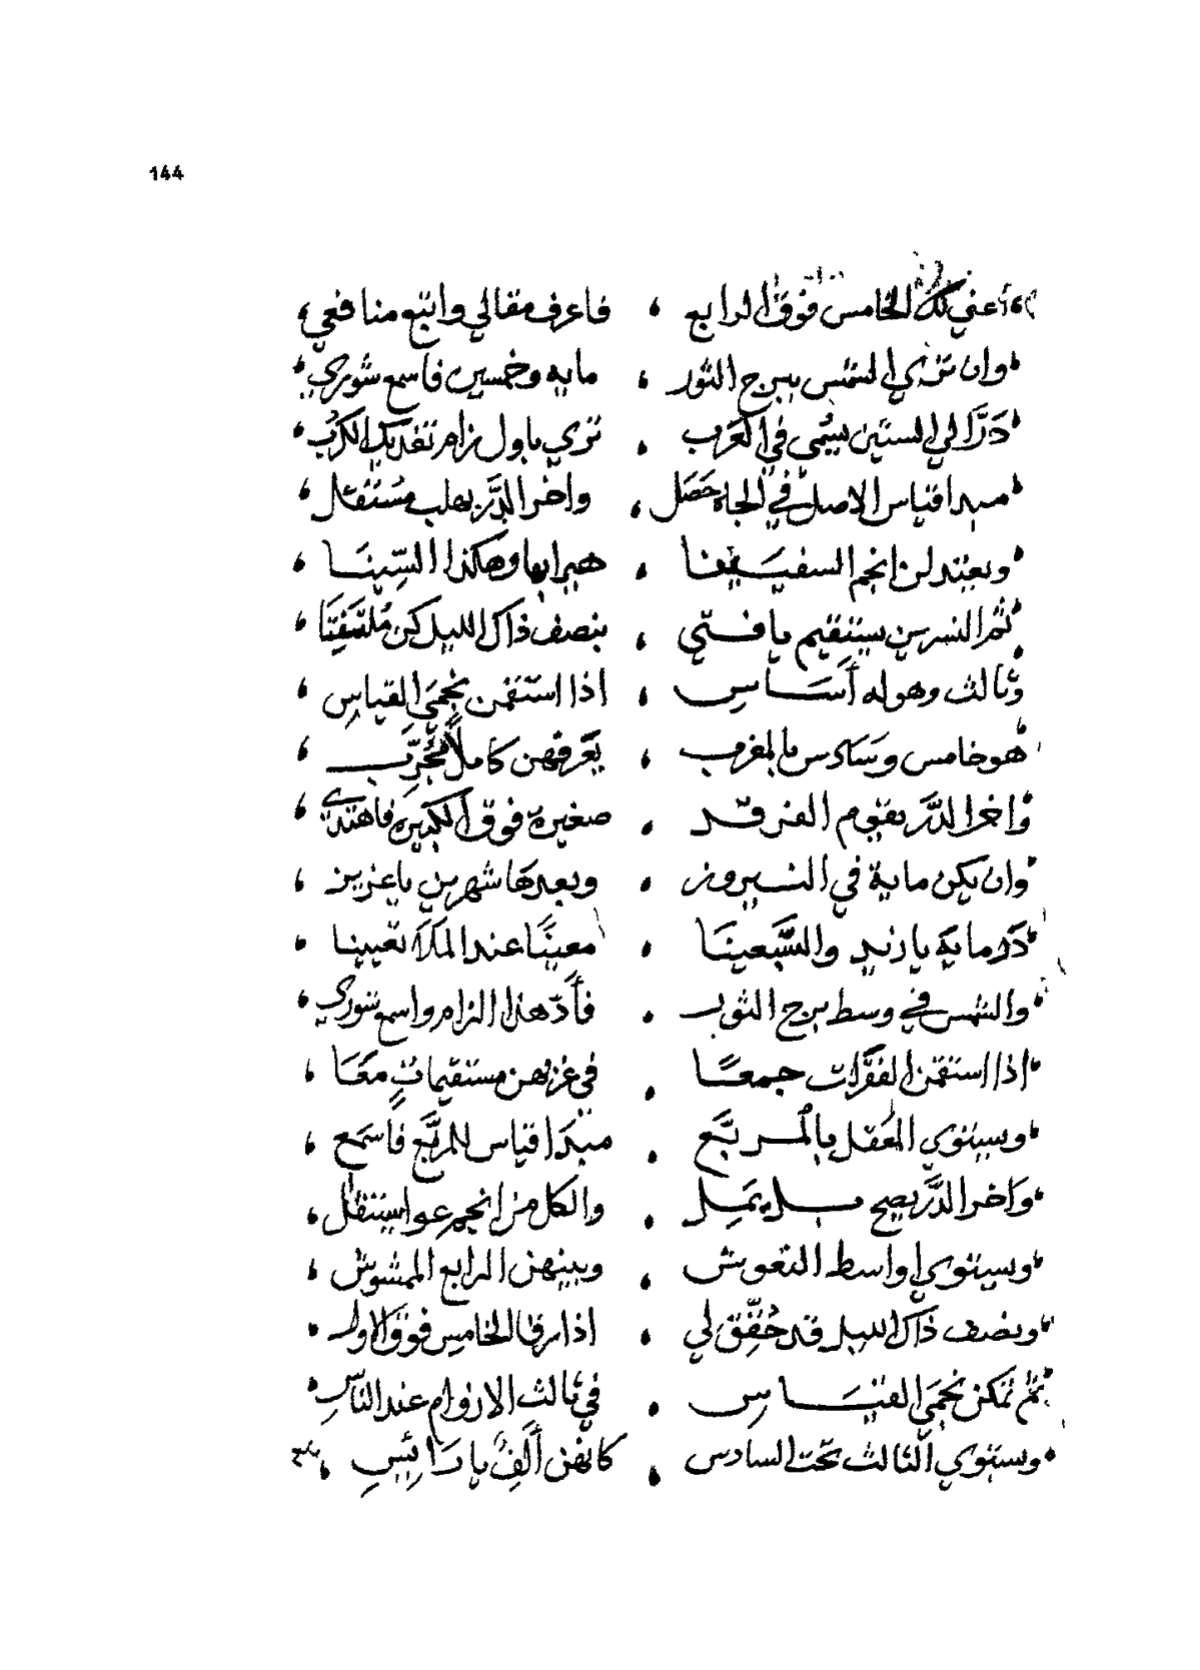 144
أعني لك الخامس فوق الرابع ، فاعرف مقالي واتبع منافعي
وان تري الشمس ببرج الثور ، مايه وخمسين فاسمع شوري
دَرّ الي الستين يسمى في العرب ، تري باول زام تفديك الكرب
مبدا قياس الاصل في الجاه حصل ، واخر الدَّر مستقل
وبعتدلن انجم السفينا ، هيرابها وهكذا السّينا
ثم النسرين يستقيم يا فتى ، بنصف ذاك الليل كن مُلتفِتا
وثالث وهو له أساس ، اذا استقمن نجمَي القياس
هو خامس وسادس بالمغرب ، يَعرفهن كاملاً مجرّب
واخر الدَّر يقيم الفرقد ، صغيره فوق الكبيره فاهتدي
وان يكن مايه في النيروز ، وبعدها شهرين يا عزيز
دَر مايه يا زيد والسَّبعينا ، معينًا عند الملا تعيينا
والشمس في وسط برج الثور ، فأدّ هذا الزام واسمع شوري
اذا استقمن الفقرات جمعًا ، في غربهن مستقيمات معَا
ويستوي العَقل بالمربَّع ، مبدَا قياس المربّع فاسمع
واخر الدَّر يصح يميل ، والكل من انجم عوا يستقل
ويستوي اواسط النعوش ، وبينهن الرابع المشوش
ونصف ذاك الليل قد حُقّق لي ، اذا رقا الخامس فوق الاول
ثم تمكن نجمَي القياس ، في ثالث الازوام عند الناس
ويستوي الثالث تحت السادس ، كانهن أَلِفٌ يا رَائِسِ